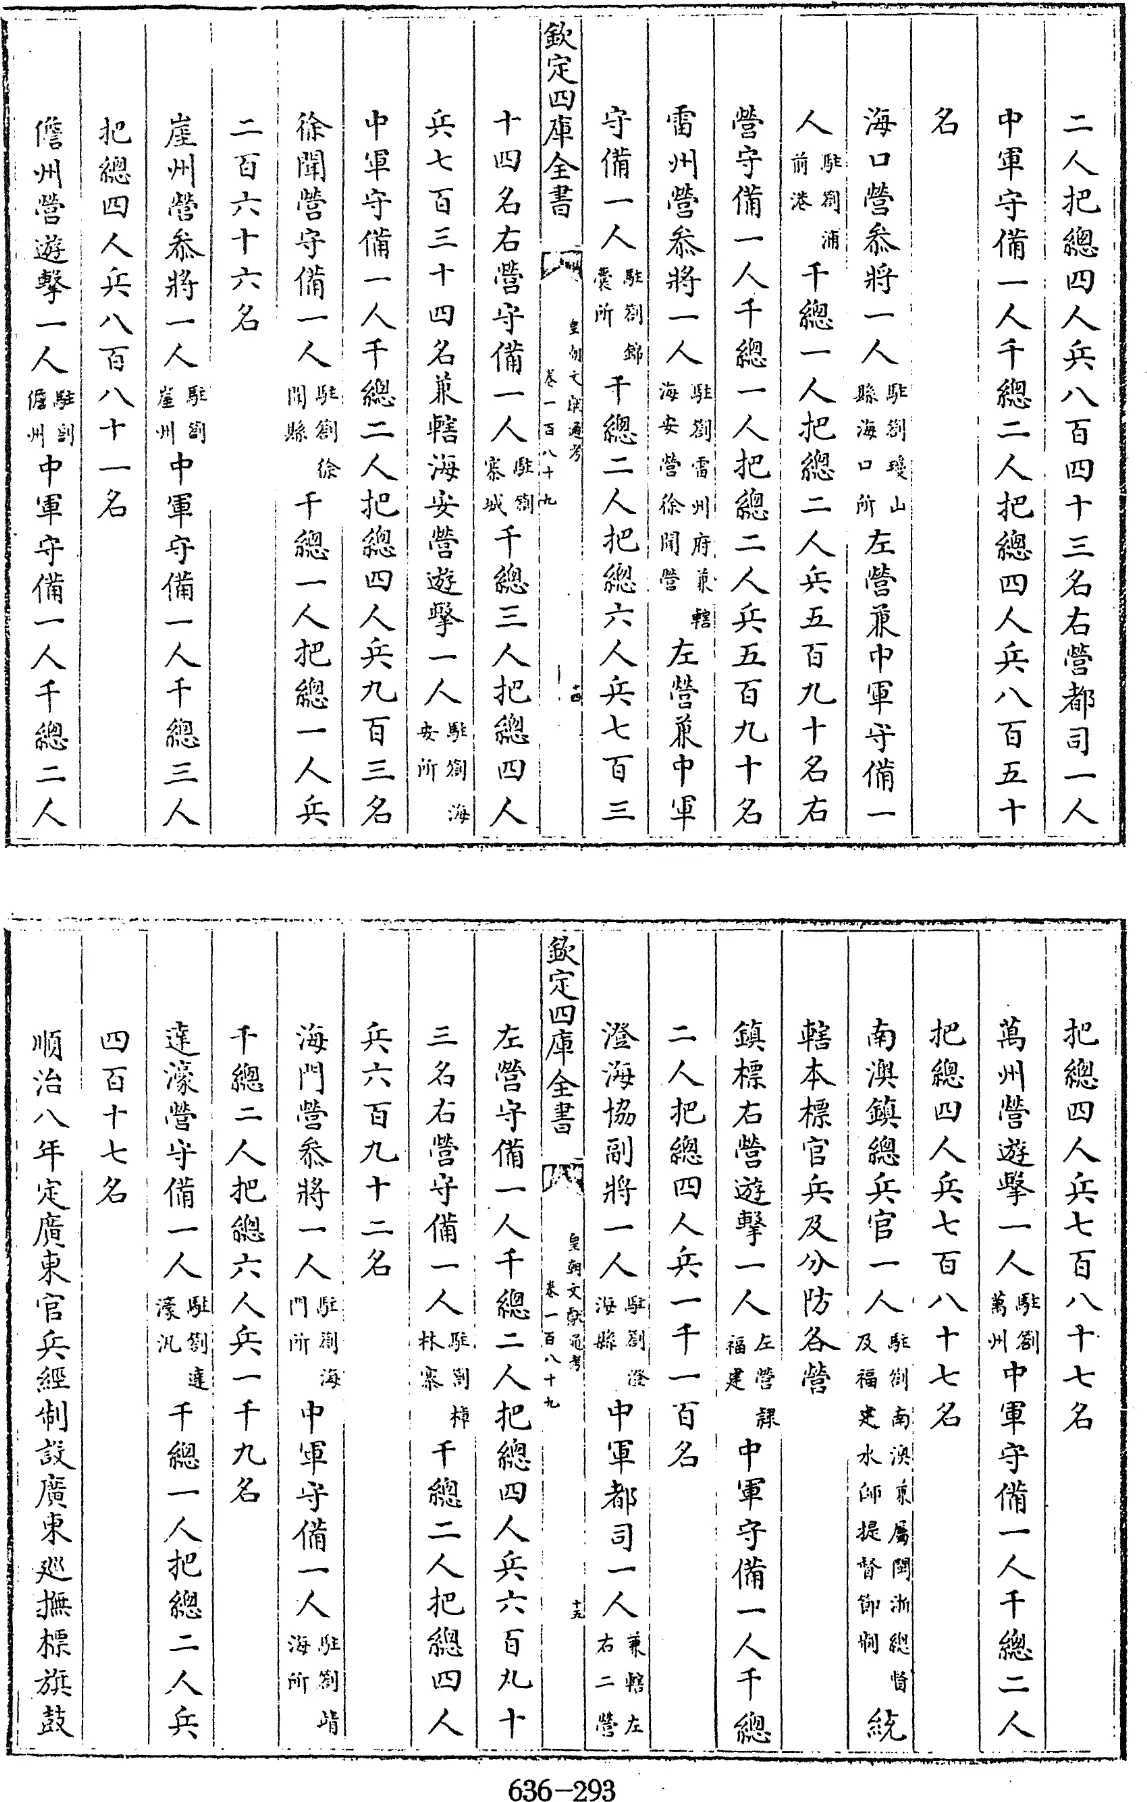 二人把總四人兵八百四十三名右營都司一人
中軍守備一人千總二人把總四人兵八百五十
名
海口營叅將一人駐劄瓊山縣海口所左營兼中軍守備一
人駐劄浦前港千總一人把總二人兵五百九十名右
營守備一人千總一人把總二人兵五百九十名
雷州營叅將一人駐劄雷州府兼轄海安營徐聞營左營兼中軍
守備一人駐劄錦囊所千總二人把總六人兵七百三
欽定四庫全書
皇朝文獻通考
卷一百八十九
十四
十四名右營守備一人駐劄寨城千總三人把總四人
兵七百三十四名兼轄海安營遊擊一人駐劄海安所
中軍守備一人千總二人把總四人兵九百三名
徐聞營守備一人駐劄徐聞縣千總一人把總一人兵
二百六十六名
崖州營叅將一人駐劄崖州中軍守備一人千總三人
把總四人兵八百八十一名
儋州營遊擊一人駐劄儋州中軍守備一人千總二人
把總四人兵七百八十七名
萬州營遊擊一人駐劄萬州中軍守備一人千總二人
把總四人兵七百八十七名
南澳鎮總兵官一人駐劄南澳兼屬閩浙總督及福建水師提督節制統
轄本標官兵及分防各營
鎮標右營遊擊一人左營隸福建中軍守備一人千總
二人把總四人兵一千一百名
澄海協副將一人駐劄澄海縣中軍都司一人兼轄左右二營
欽定四庫全書
皇朝文獻通考
卷一百八十九
十五
左營守備一人千總二人把總四人兵六百九十
三名右營守備一人駐劄樟林寨千總二人把總四人
兵六百九十二名
海門營叅將一人駐劄海門所中軍守備一人駐劄靖海所
千總二人把總六人兵一千九名
達濠營守備一人駐劄達濠汛千總一人把總二人兵
四百十七名
順治八年定廣東官兵經制設廣東廵撫標旗鼓
636-293